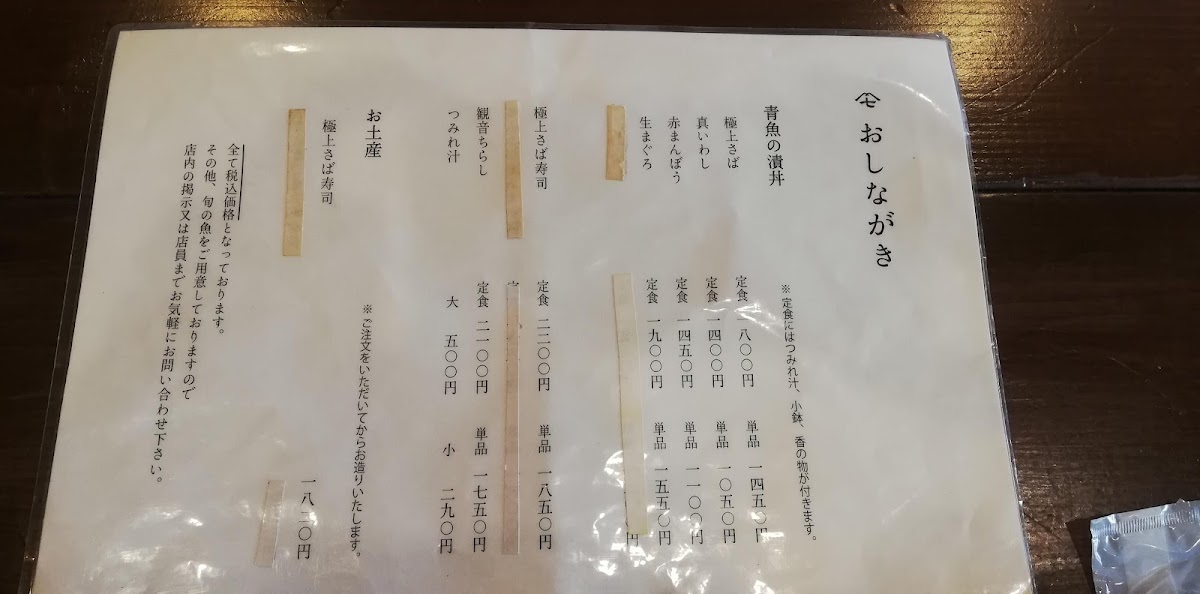 モ おしながき
青魚の漬丼
※定食にはつみれ汁、小鉢、香の物が付きます。
極上さば 定食 一八〇〇円 単品 一四五〇円
真いわし 定食 一四〇〇円 単品 一〇五〇円
赤まんぼう 定食 一四五〇円 単品 一一〇〇円
生まぐろ 定食 一九〇〇円 単品 一五五〇円
極上さば寿司 定食 二二〇〇円 単品 一八五〇円
観音ちらし 定食 二一〇〇円 単品 一七五〇円
つみれ汁 大 五〇〇円 小 二九〇円
お土産
※ご注文をいただいてからお造りいたします。
極上さば寿司 一八二〇円
全て税込価格となっております。
その他、旬の魚をご用意しておりますので
店内の掲示又は店員までお気軽にお問い合わせ下さい。